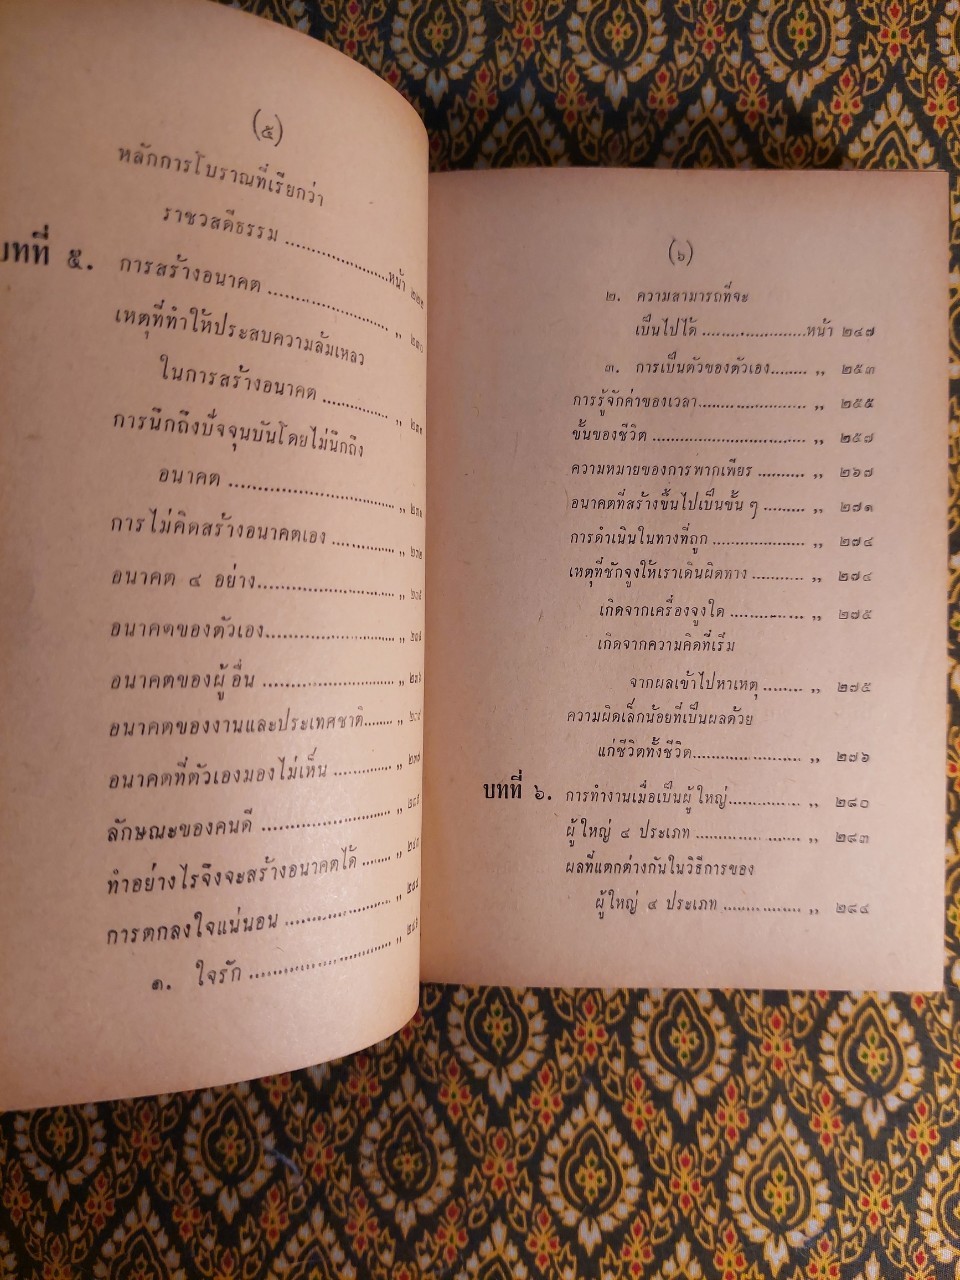 (๕)
หลักการโบราณที่เรียกว่า
ราชวสดีธรรม ....................หน้า
บทที่ ๕. การสร้างอนาคต .................... ,,
เหตุที่ทำให้ประสบความล้มเหลว
ในการสร้างอนาคต ............... ,,
การนึกถึงปัจจุบันโดยไม่นึกถึง
อนาคต ........................... ,,
การไม่คิดสร้างอนาคตเอง ............ ,,
อนาคต ๔ อย่าง........................ ,,
อนาคตของตัวเอง........................ ,,
อนาคตของผู้อื่น ........................ ,,
อนาคตของงานและประเทศชาติ....... ,,
อนาคตที่ตัวเองมองไม่เห็น ............ ,,
ลักษณะของคนดี ........................ ,,
ทำอย่างไรจึงจะสร้างอนาคตได้ ........ ,,
การตกลงใจแน่นอน ..................... ,,
๑. ใจรัก ........................... ,,
(๖)
๒. ความสามารถที่จะ
เป็นไปได้ .....................หน้า ๒๔๗
๓. การเป็นตัวของตัวเอง........ ,, ๒๕๓
การรู้จักค่าของเวลา...................... ,, ๒๕๕
ขั้นของชีวิต .............................. ,, ๒๕๗
ความหมายของการพากเพียร .......... ,, ๒๖๗
อนาคตที่สร้างขึ้นไปเป็นขั้น ๆ ......... ,, ๒๗๑
การดำเนินในทางที่ถูก .................. ,, ๒๗๔
เหตุที่ชักจูงให้เราเดินผิดทาง ........... ,, ๒๗๔
เกิดจากเครื่องจูงใด ............... ,, ๒๗๕
เกิดจากความคิดที่เริ่ม
จากผลเข้าไปหาเหตุ ........ ,, ๒๗๕
ความผิดเล็กน้อยที่เป็นผลด้วย
แก่ชีวิตทั้งชีวิต...................... ,, ๒๗๖
บทที่ ๖. การทำงานเมื่อเป็นผู้ใหญ่.............. ,, ๒๘๐
ผู้ใหญ่ ๔ ประเภท ..................... ,, ๒๘๓
ผลที่แตกต่างกันในวิธีการของ
ผู้ใหญ่ ๔ ประเภท ................ ,, ๒๘๔